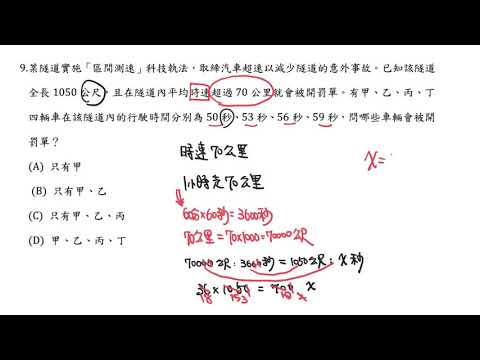 9.某隧道實施「區間測速」科技執法，取締汽車超速以減少隧道的意外事故。已知該隧道
全長 1050 公尺，且在隧道內平均時速超過 70 公里就會被開罰單。有甲、乙、丙、丁
四輛車在該隧道內的行駛時間分別為 50 秒、53 秒、56 秒、59 秒，問哪些車輛會被開
罰單？
(A) 只有甲
(B) 只有甲、乙
(C) 只有甲、乙、丙
(D) 甲、乙、丙、丁
時速70公里
x=
1小時走70公里
60分×60秒=3600秒
70公里=70×1000=70000公尺
70000公尺:3600秒=1050公尺:x秒
36×1050=700x
18 153 10